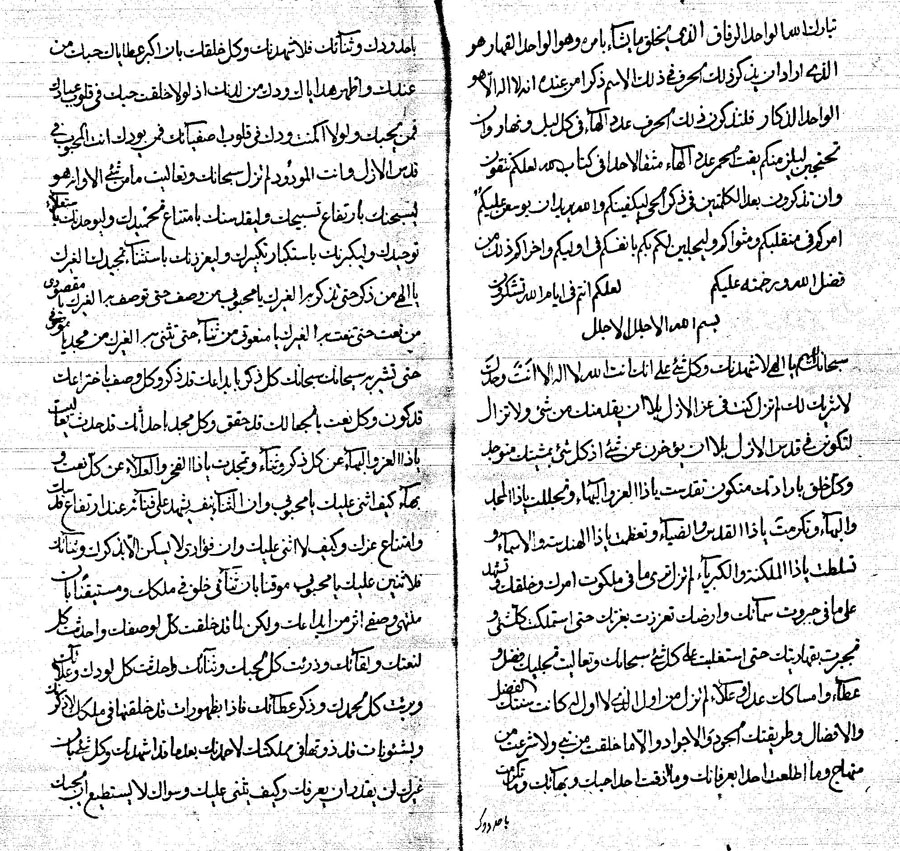 تبارك الله الواحد الرفاق الذي يخلق ما يشاء بامره وهو الواحد القهار هو
الذي اراد ان يذكر ذلك الحرف في ذلك الاسم ذكرا من عنده انه لا اله الا هو
الواحد الذكار فلتذكرن ذلك الحرف عدد الهاء في كل ليل ونهار وان
منكم عدد الهاء الاحد في كتاب الله لعلكم تتقون
وان تذكرون بعد الكلمتين في ذكر الحي ليكفينكم والله يريد ان يوسعن عليكم
امركم في منقلبكم ومثواكم لكم بكم بانفسكم في اوليكم واخراكم ذلك من
فضل الله ورحمته عليكم لعلكم انتم في ايام الله تشكرون
بسم الله الاجلل الاجلل
سبحانك اللهم يا الهي لاشهدنك وكل شئ على انك انت الله لا اله الا انت وحدك
لا شريك لك لم تزل كنت في عز الازل بلا ان يقدمنك من شئ ولا تزال
لتكونن في قدس الازل بلا ان يؤخرن عن شئ اذ كل شئ بمشيتك منوجد
وكل خلق بارادتك منكون تقدست يا ذا العز والبهاء وتجللت يا ذا المجد
والبهاء وتكرمت يا ذا القدس والضياء وتعظمت يا ذا الهندسة والاسماء و
تسلطت يا ذا الملكنة والكبرياء لم تزل ترى ما في ملكوت امرك وخلقك وتشهد
على ما في جبروت سمائك وارضك تعززت بعزتك حتى استملكت كلشئ و
تجبرت بقهاريتك حتى استغلبت على كل شئ سبحانك وتعاليت فضل و
عطاء وامساكك عدل وعلاء لم تزل من اول الذي لا اول له كانت سنتك الفضل
والافضال وطريقتك الجود والاجواد والا ما خلقت من شئ ولا شرعت من
منهاج وما اطلعت احدا بعرفانك وما ذقت احدا حبك وبهائك وتكرمت
باحد ودك
باحد ودك وثنائك فلاشهدنك وكل خلقك بان اكبر عطاياك حبك من
عندك واظهر هداياك ودك من لدنك اذ لولا خلقت حبك في قلوب عبادك
فمن يحبك ولولا اكمنت ودك في قلوب اصفيائك فمن يودك انت المحبوب في
قدس الازل وانت المودود لم تزل سبحانك وتعاليت ما من شئ الا وانه هو
ليسبحنك بارتفاع تسبيحك وليقدسنك بامتناع تحميدك وليوحدنك
توحيدك وليكبرنك باستكبار تكبيرك وليعززنك باستثناء تمجيدك الغيرك
يا الهي من ذكر حتى تذكر به الغيرك يا محبوبي من وصف حتى توصف به الغيرك يا مقصودي
من نعت حتى تنعت به الغيرك يا منعوتي من ثناء حتى تثنى به الغيرك من مجد يا
حتى به سبحانك سبحانك كل ذكر بابداعك قد ذكر وكل وصف باختراعك
قد كون وكل نعت لك قد حقق وكل مجد باحداثك قد حدث
يا ذا العز والبهاء عن كل ذكر وثناء وتمجدت يا ذا الفخر والعلاء عن كل نعت و
بهاء كيف اثني عليك يا محبوبي وان الثناء بنفسه يشهد على فنائه عند ارتفاع
وامتناع عزك وكيف لا اثني عليك وان فؤادي لا يسكن الا بذكرك وثنائك
فلاثنين عليك يا محبوبي موقنا بان ثنائي خلق في ملكك ومستيقنا بان
منتهى وصفي اثر من ابداعك ولكن لما قد خلقت كل لوصفك واحدثت كل
لنعتك ولقائك وذرئت كل لحبك وثنائك واحدثت كل لودك وعلائك
وبرئت كل لمحمدك وذكر عطائك فاذا بظهورات قد خلقتها في ملكك
وبشئونات قد ذوتها في مملكتك لاحمدنك بعد ما قد اشهدك وكل شئ بان
غيرك لن يقدر ان يعرفك وكيف يثني عليك وسواك لا يستطيع ان يحبك